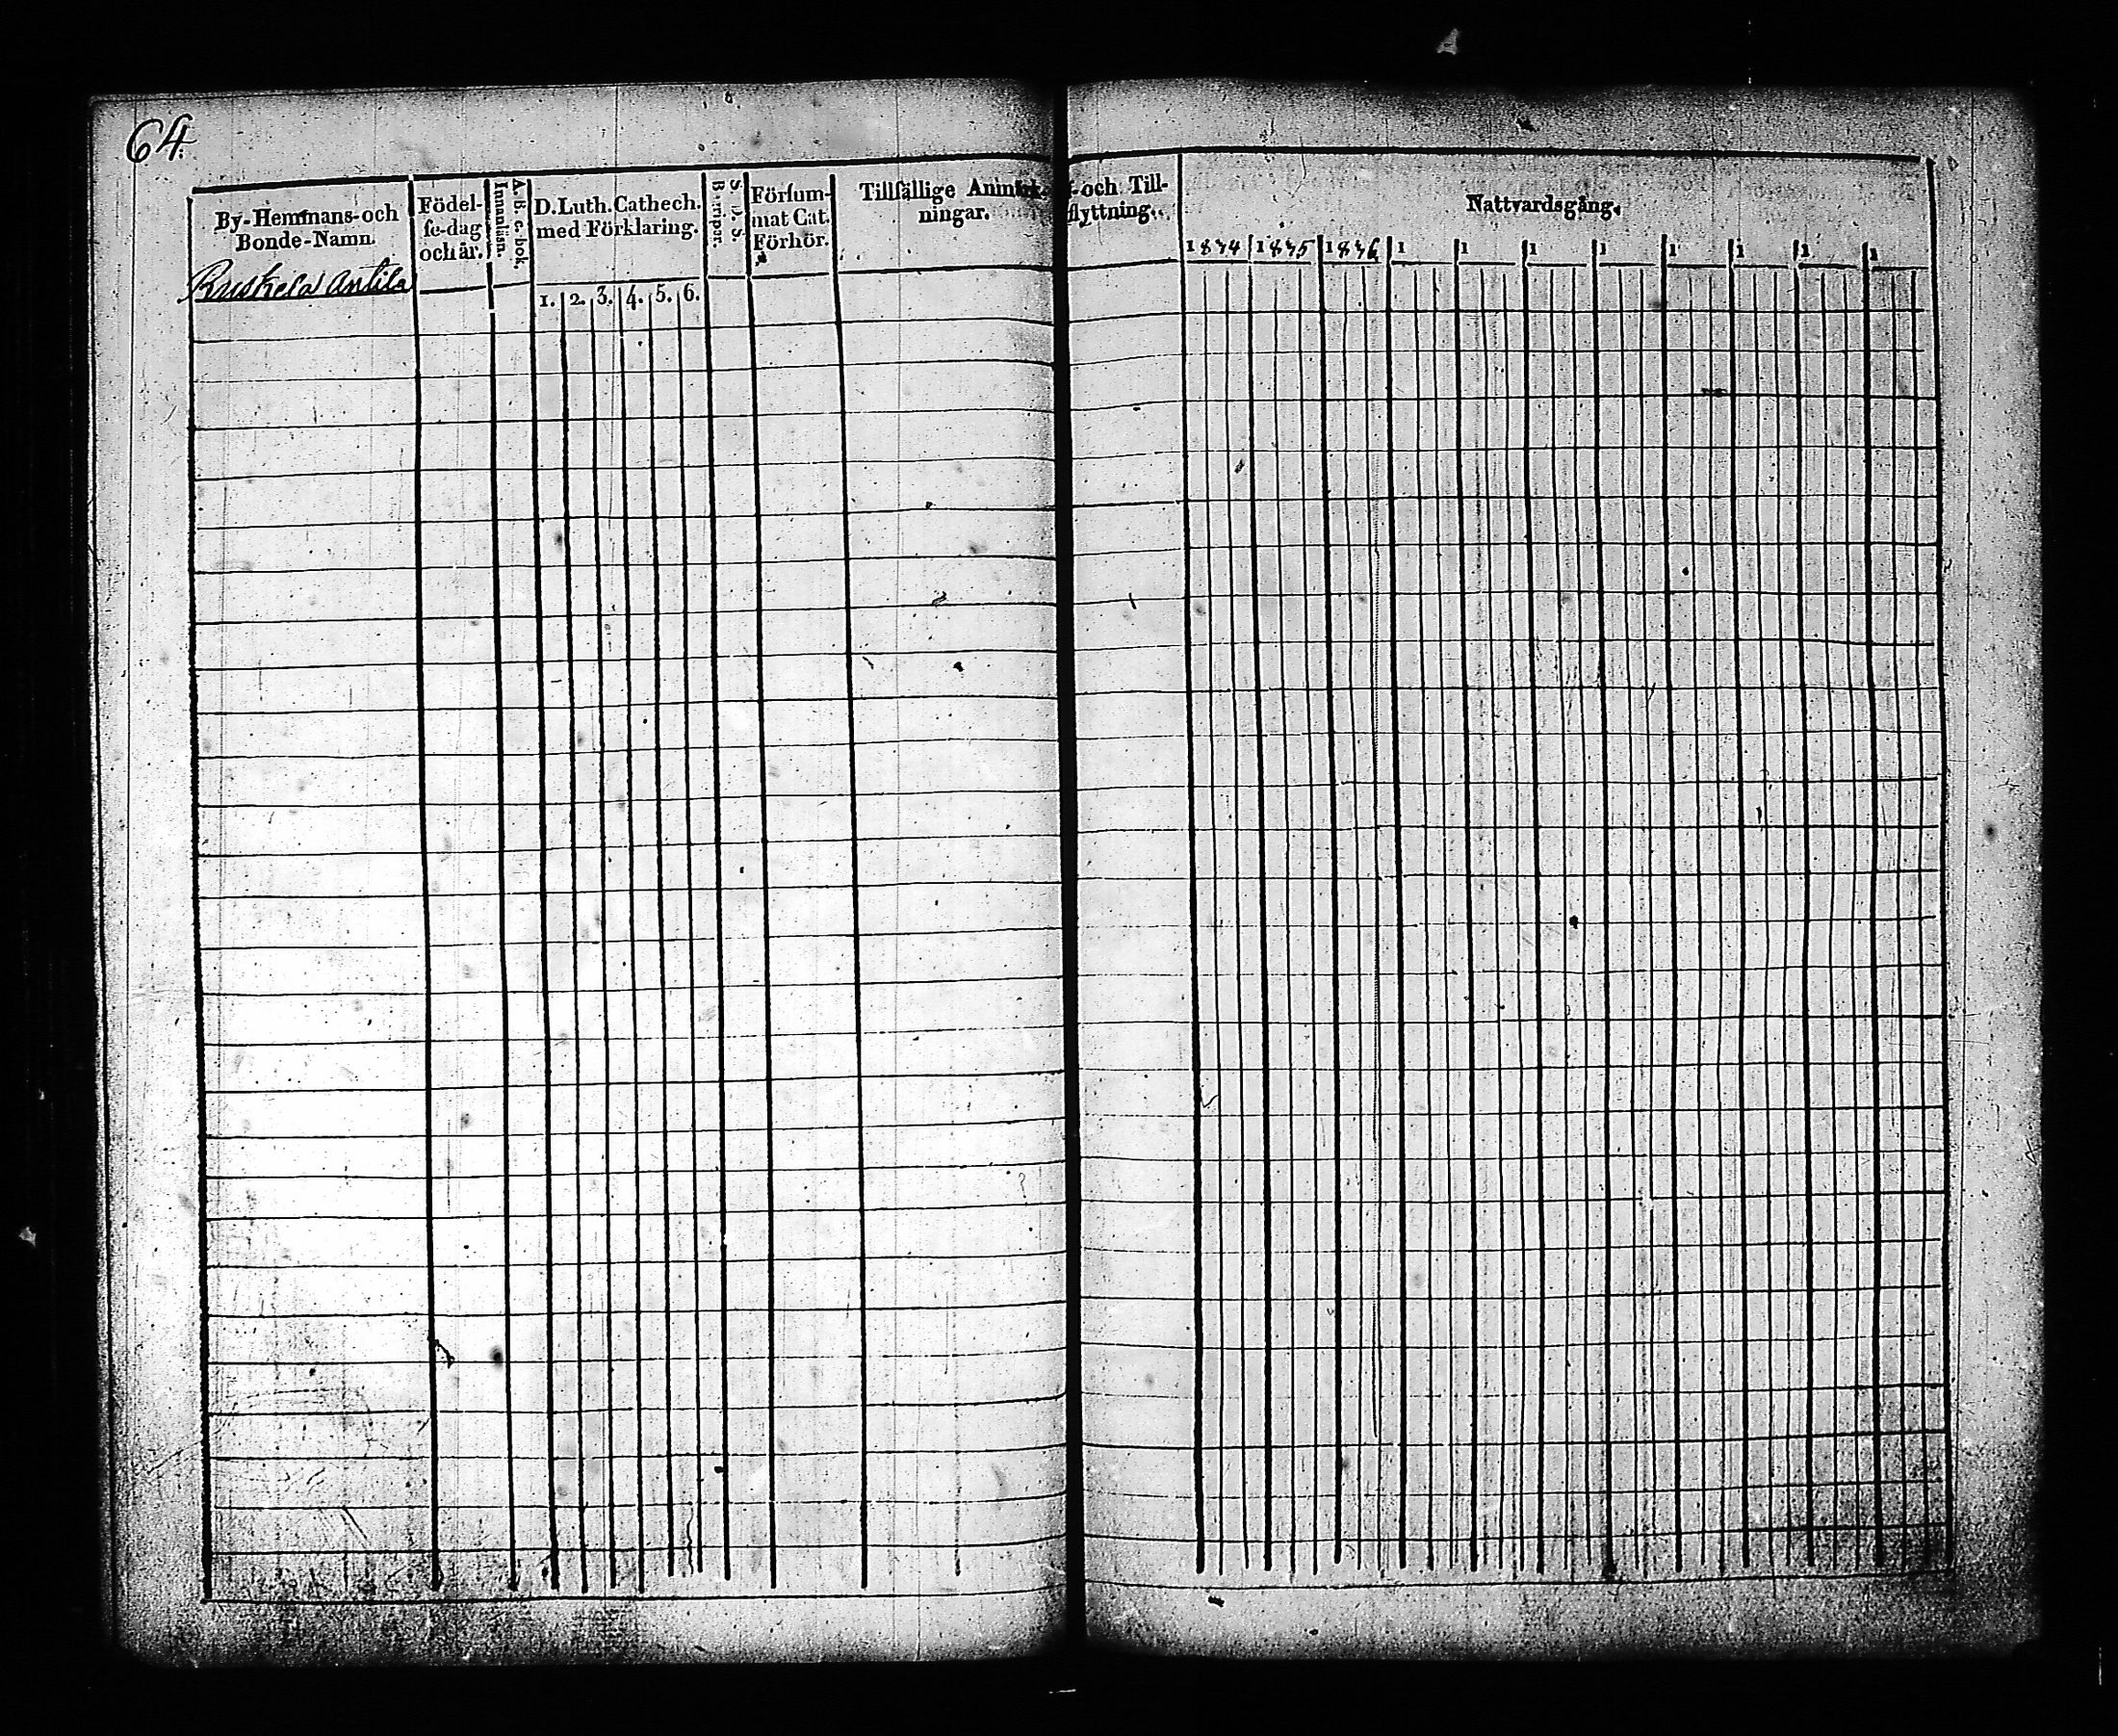 64.
By-Hemmans-och
Bonde-Namn.
Ruskela Antila
Födel-
se-dag
och år.
A. B. c. bok,
Innanläsn.
D. Luth. Cathech.
med Förklaring.
1. 2. 3. 4. 5. 6.
Försum-
mat Cat.
Förhör.
Tillfällige Anmärk-
ningar.
och Till-
flyttning.
Nattvardsgång.
1834 1835 1836 1 1 1 1 1 1 1 1